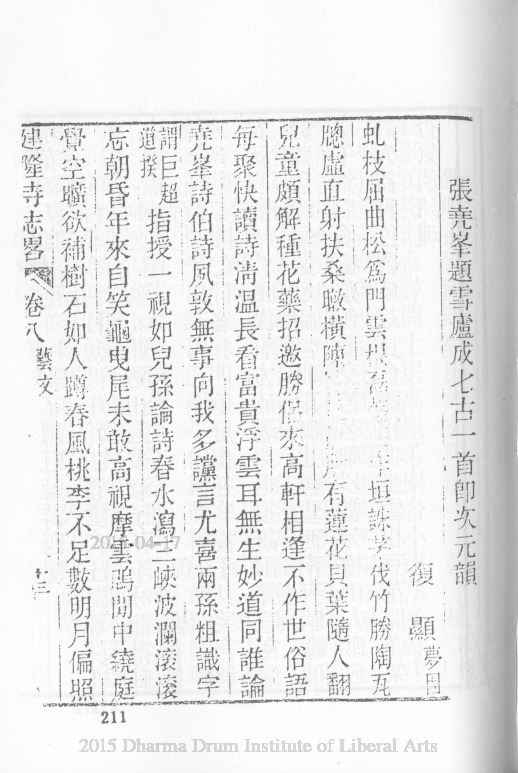 張堯峯題雪廬成七古一首卽次元韻
復顯
虬枝屈曲松爲門雲垣誅茅伐竹勝陶瓦
牕虛直射扶桑暾橫陳有蓮花貝葉隨人翻
兒童頗解種花藥招邀勝侶來高軒相逢不作世俗語
每聚快讀詩淸溫長看富貴浮雲耳無生妙道同誰論
堯峯詩伯詩夙敦無事向我多讜言尤喜兩孫粗識字
謂巨超
道揆
指授一視如兒孫論詩春水瀉三峽波瀾滚滚
忘朝昏年來自笑龜曳尾未敢高視摩雲鵾閒中繞庭
覺空曠欲補樹石如人蹲春風桃李不足數明月偏照
建隆寺志畧
卷八
藝文
211
2015 Dharma Drum Institute of Liberal Arts